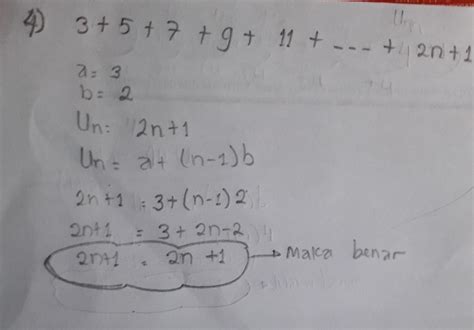 4) 3 + 5 + 7 + 9 + 11 + --- + 2n+1
a = 3
b = 2
Un = 2n+1
Un = a + (n-1)b
2n+1 = 3+(n-1)2
2n+1 = 3 + 2n-2
2n+1 = 2n +1 → Maka benar